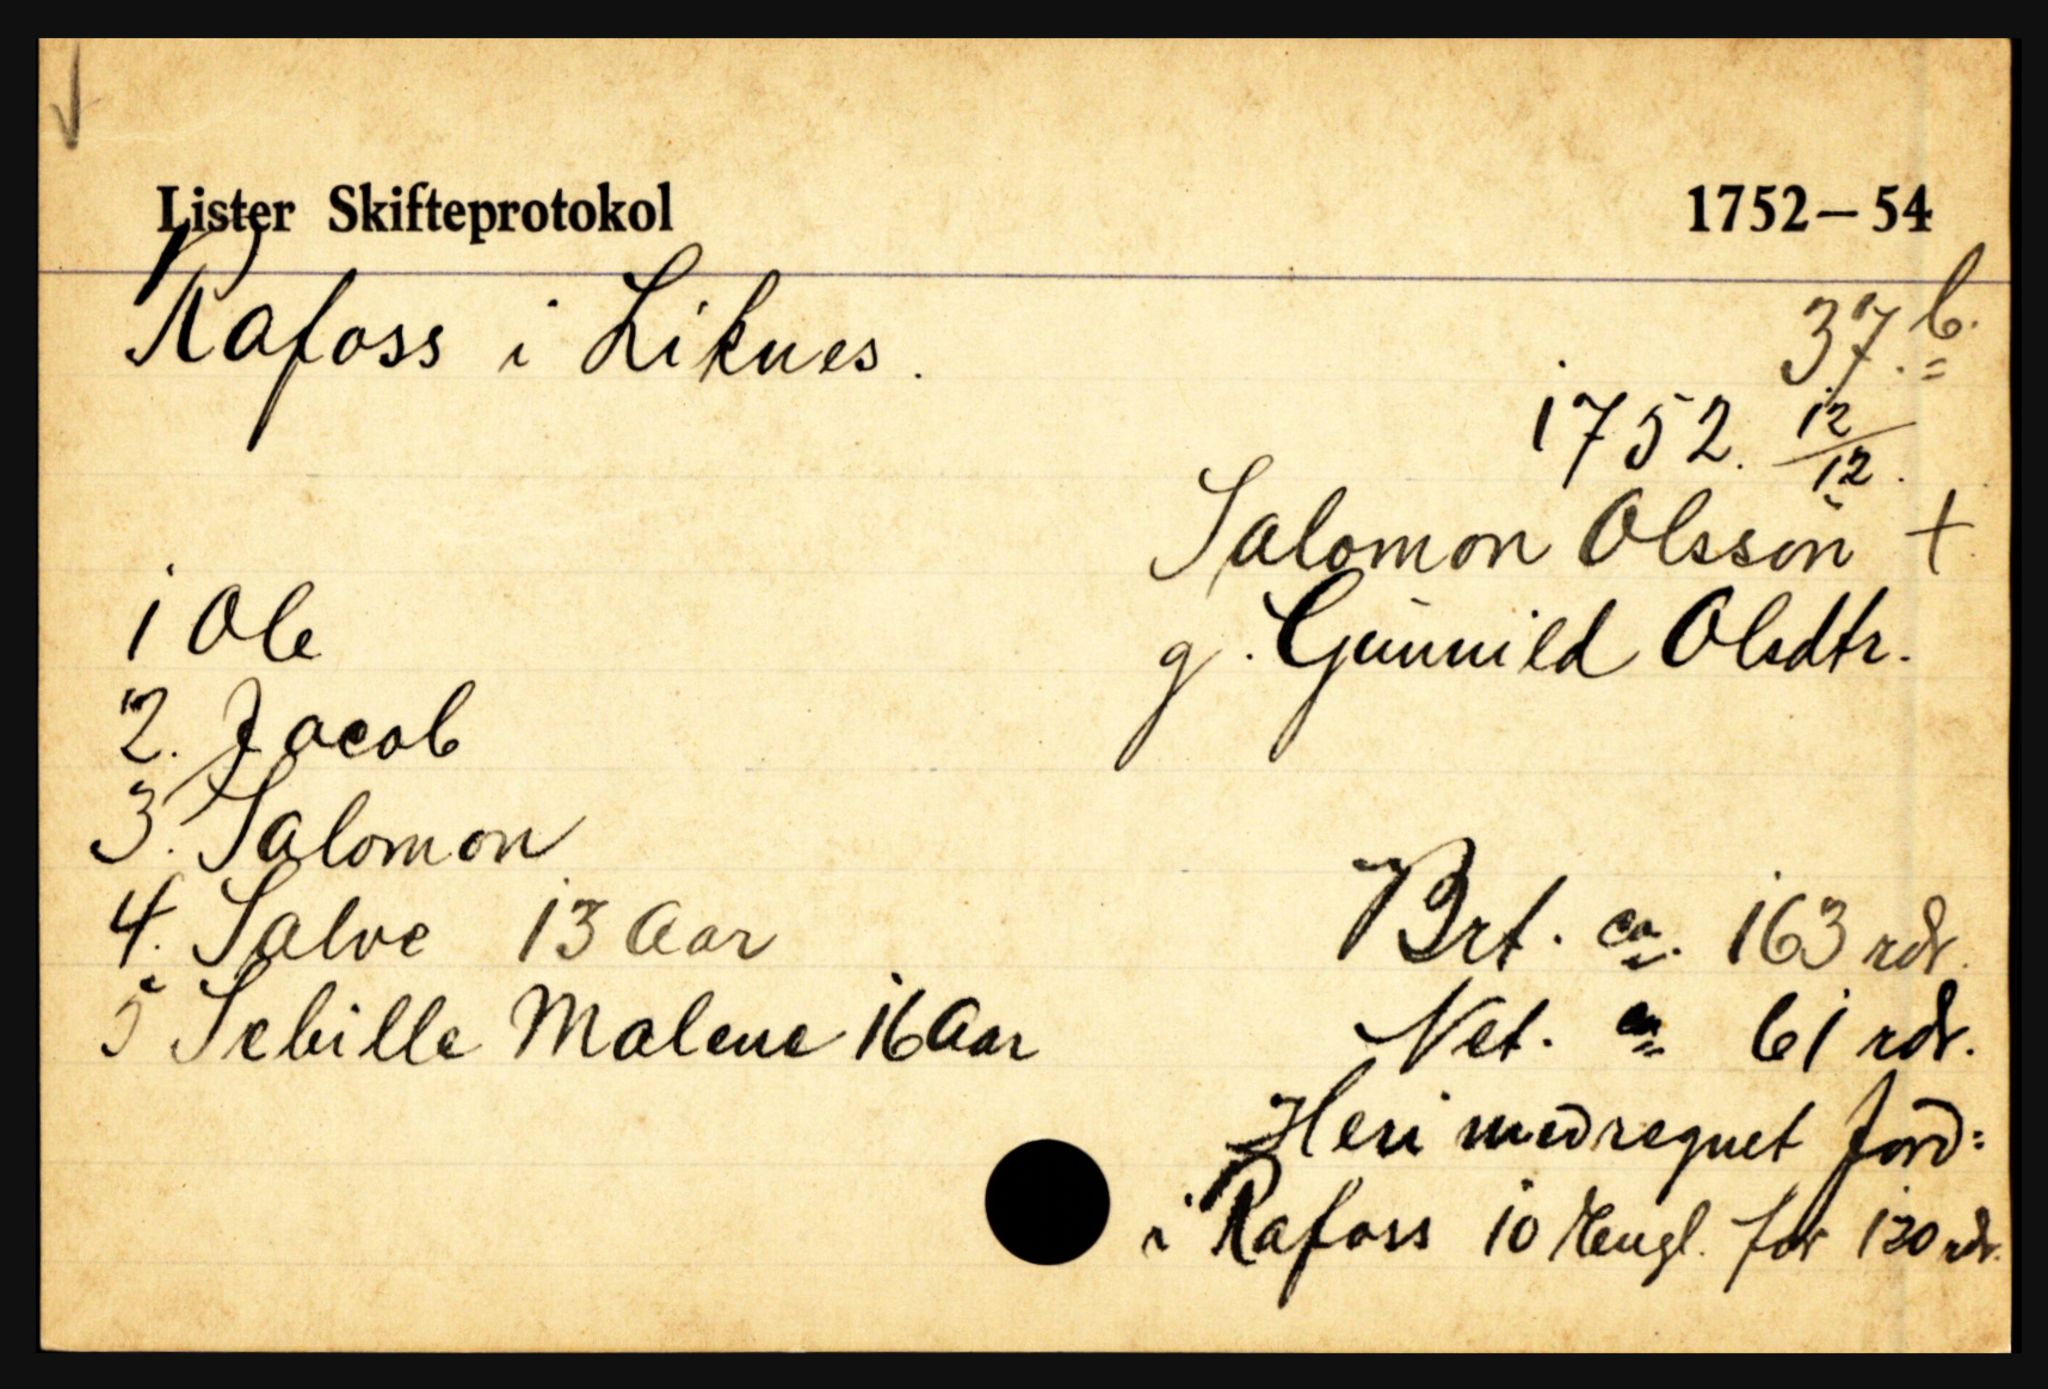 Lister Skifteprotokol 1752–54
Rafoss i Liknes.
37.b.
1752. 12/12.
Salomon Olsson +
g. Gunnild Olsdtr.
1 Ole
2. Jacob
3. Salomon
4. Salve 13 Aar
5 Sebille Malene 16 Aar
Brt. ca. 163 rdr.
Net. ca 61 rdr.
Heri medregnet Jord=
i Rafoss 10 Kengl. for 120 rdr.